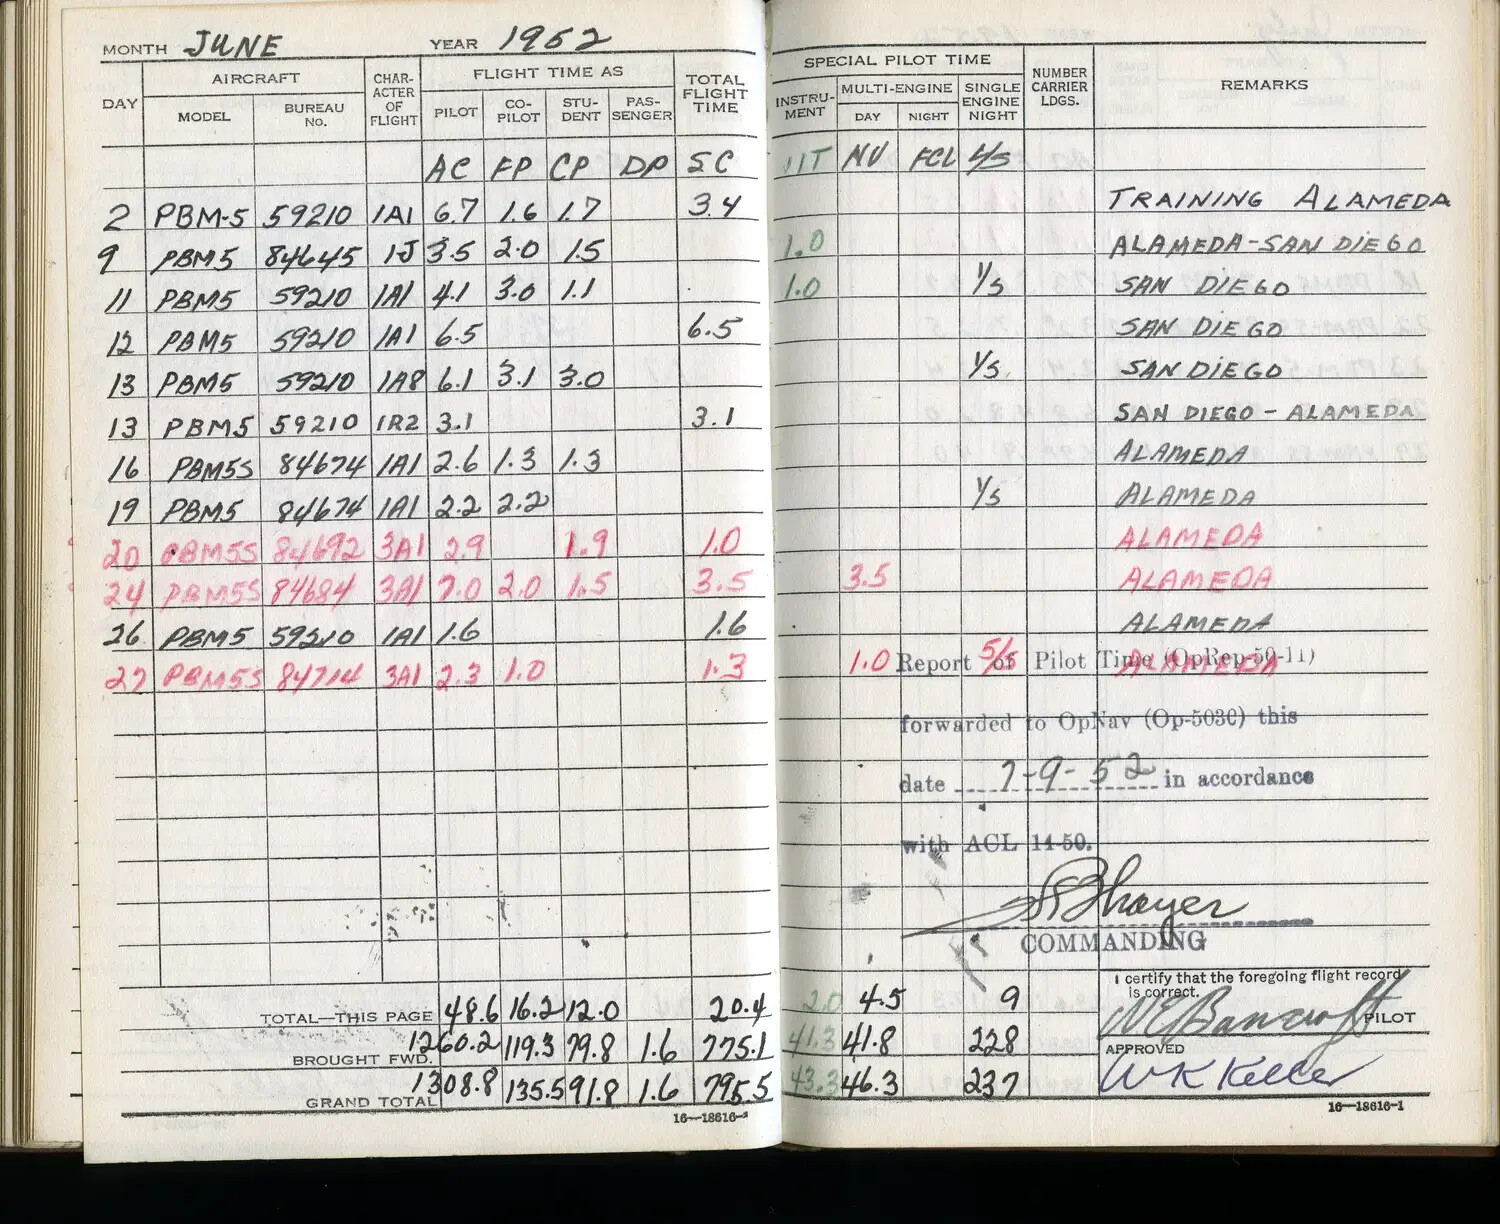 MONTH JUNE YEAR 1952
DAY AIRCRAFT CHAR-ACTER OF FLIGHT FLIGHT TIME AS TOTAL FLIGHT TIME SPECIAL PILOT TIME NUMBER CARRIER LDGS. REMARKS
MODEL BUREAU No. PILOT CO-PILOT STU-DENT PAS-SENGER INSTRU-MENT MULTI-ENGINE SINGLE ENGINE NIGHT
DAY NIGHT
AC FP CP DP SC IIT NV FCL L/S
2 PBM-5 59210 1A1 6.7 1.6 1.7 3.4 TRAINING ALAMEDA
9 PBM5 84645 1J 3.5 2.0 1.5 1.0 ALAMEDA-SAN DIEGO
11 PBM5 59210 1A1 4.1 3.0 1.1 1.0 1/5 SAN DIEGO
12 PBM5 59210 1A1 6.5 6.5 SAN DIEGO
13 PBM5 59210 1A8 6.1 3.1 3.0 1/5 SAN DIEGO
13 PBM5 59210 1R2 3.1 3.1 SAN DIEGO - ALAMEDA
16 PBM5S 84674 1A1 2.6 1.3 1.3 ALAMEDA
19 PBM5 84674 1A1 2.2 2.2 1/5 ALAMEDA
20 PBM5S 84692 3A1 2.9 1.9 1.0 ALAMEDA
24 PBM5S 84684 3A1 7.0 2.0 1.5 3.5 3.5 ALAMEDA
26 PBM5 59210 1A1 1.6 1.6 ALAMEDA
27 PBM5S 84714 3A1 2.3 1.0 1.3 1.0 5/5 ALAMEDA
Report of Pilot Time (OpRep-50-11)
forwarded to OpNav (Op-503C) this
date 7-9-52 in accordance
with ACL 14-50.
COMMANDING
I certify that the foregoing flight record is correct.
TOTAL—THIS PAGE 48.6 16.2 12.0 20.4 2.0 4.5 9 W E Bancroft PILOT
BROUGHT FWD. 1260.2 119.3 79.8 1.6 775.1 41.3 41.8 228 APPROVED
GRAND TOTAL 1308.8 135.5 91.8 1.6 795.5 43.3 46.3 237 W K Keller
16—18616-2 16—18616-1